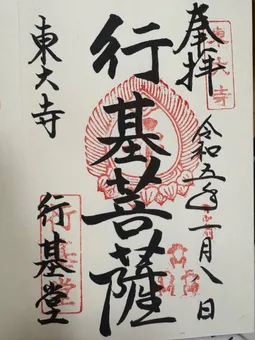 奉拝
令和五年一月八日
行基菩薩
東大寺
行基堂
東大寺
行基堂